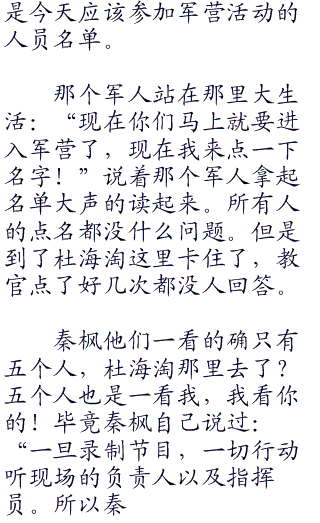 是今天应该参加军营活动的
人员名单。
那个军人站在那里大生
活：“现在你们马上就要进
入军营了，现在我来点一下
名字！”说着那个军人拿起
名单大声的读起来。所有人
的点名都没什么问题。但是
到了杜海淘这里卡住了，教
官点了好几次都没人回答。
秦枫他们一看的确只有
五个人，杜海淘那里去了？
五个人也是一看我，我看你
的！毕竟秦枫自己说过：
“一旦录制节目，一切行动
听现场的负责人以及指挥
员。所以秦